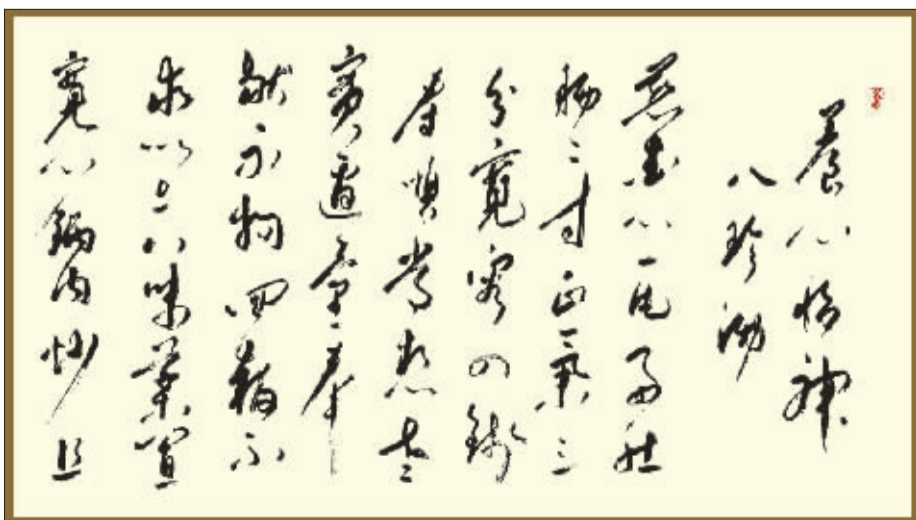 養心怡神
八珍湯
慈愛心一片好肚
腸二寸正氣三
分寬容四錢
孝順常想老
實適量奉
獻不拘回報不
求以上八味藥
寬心鍋內炒且